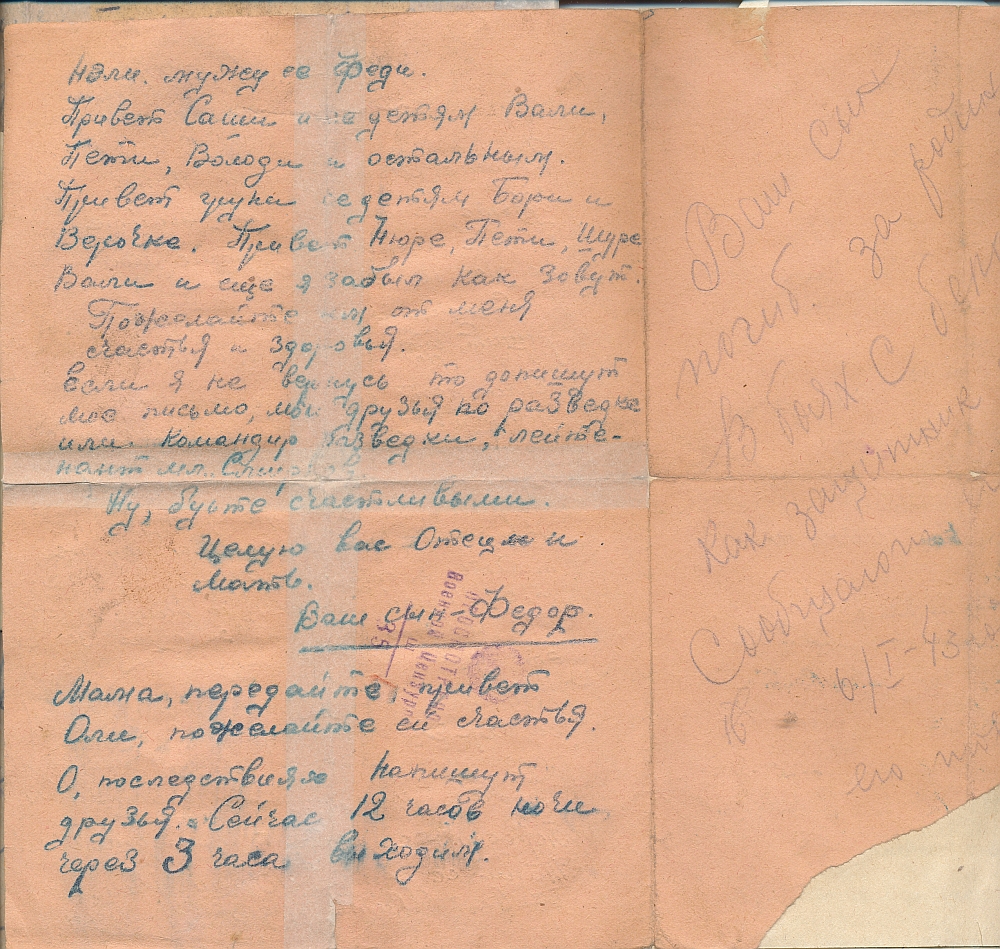 Нали. мужу ее Феди.
Привет Саши и ее детям Вали,
Пети, Володи и остальным.
Привет груни ее детям Бори и
Верочке. Привет Нюре, Пети, Шуре
Вали и еще я забыл как зовут.
Пожелайте им от меня
счастья и здоровья.
Если я не вернусь то допишут
мое письмо, мои друзья по разведке
или командир разведки, лейте-
нант мл.
Ну, будте счастливыми.
Целую вас Отец и
Мать.
Ваш сын-Федор.
Мама, передайте, привет
Оли, пожелайте ей счастья.
О, последствиях напишут
друзья. Сейчас 12 часов ночи
через 3 часа выходим.
Просмотрено
Военной Цензурой
Ваш сын
погиб. за родину
В боях С
как защитник
Сообщалось
6/I-43
его